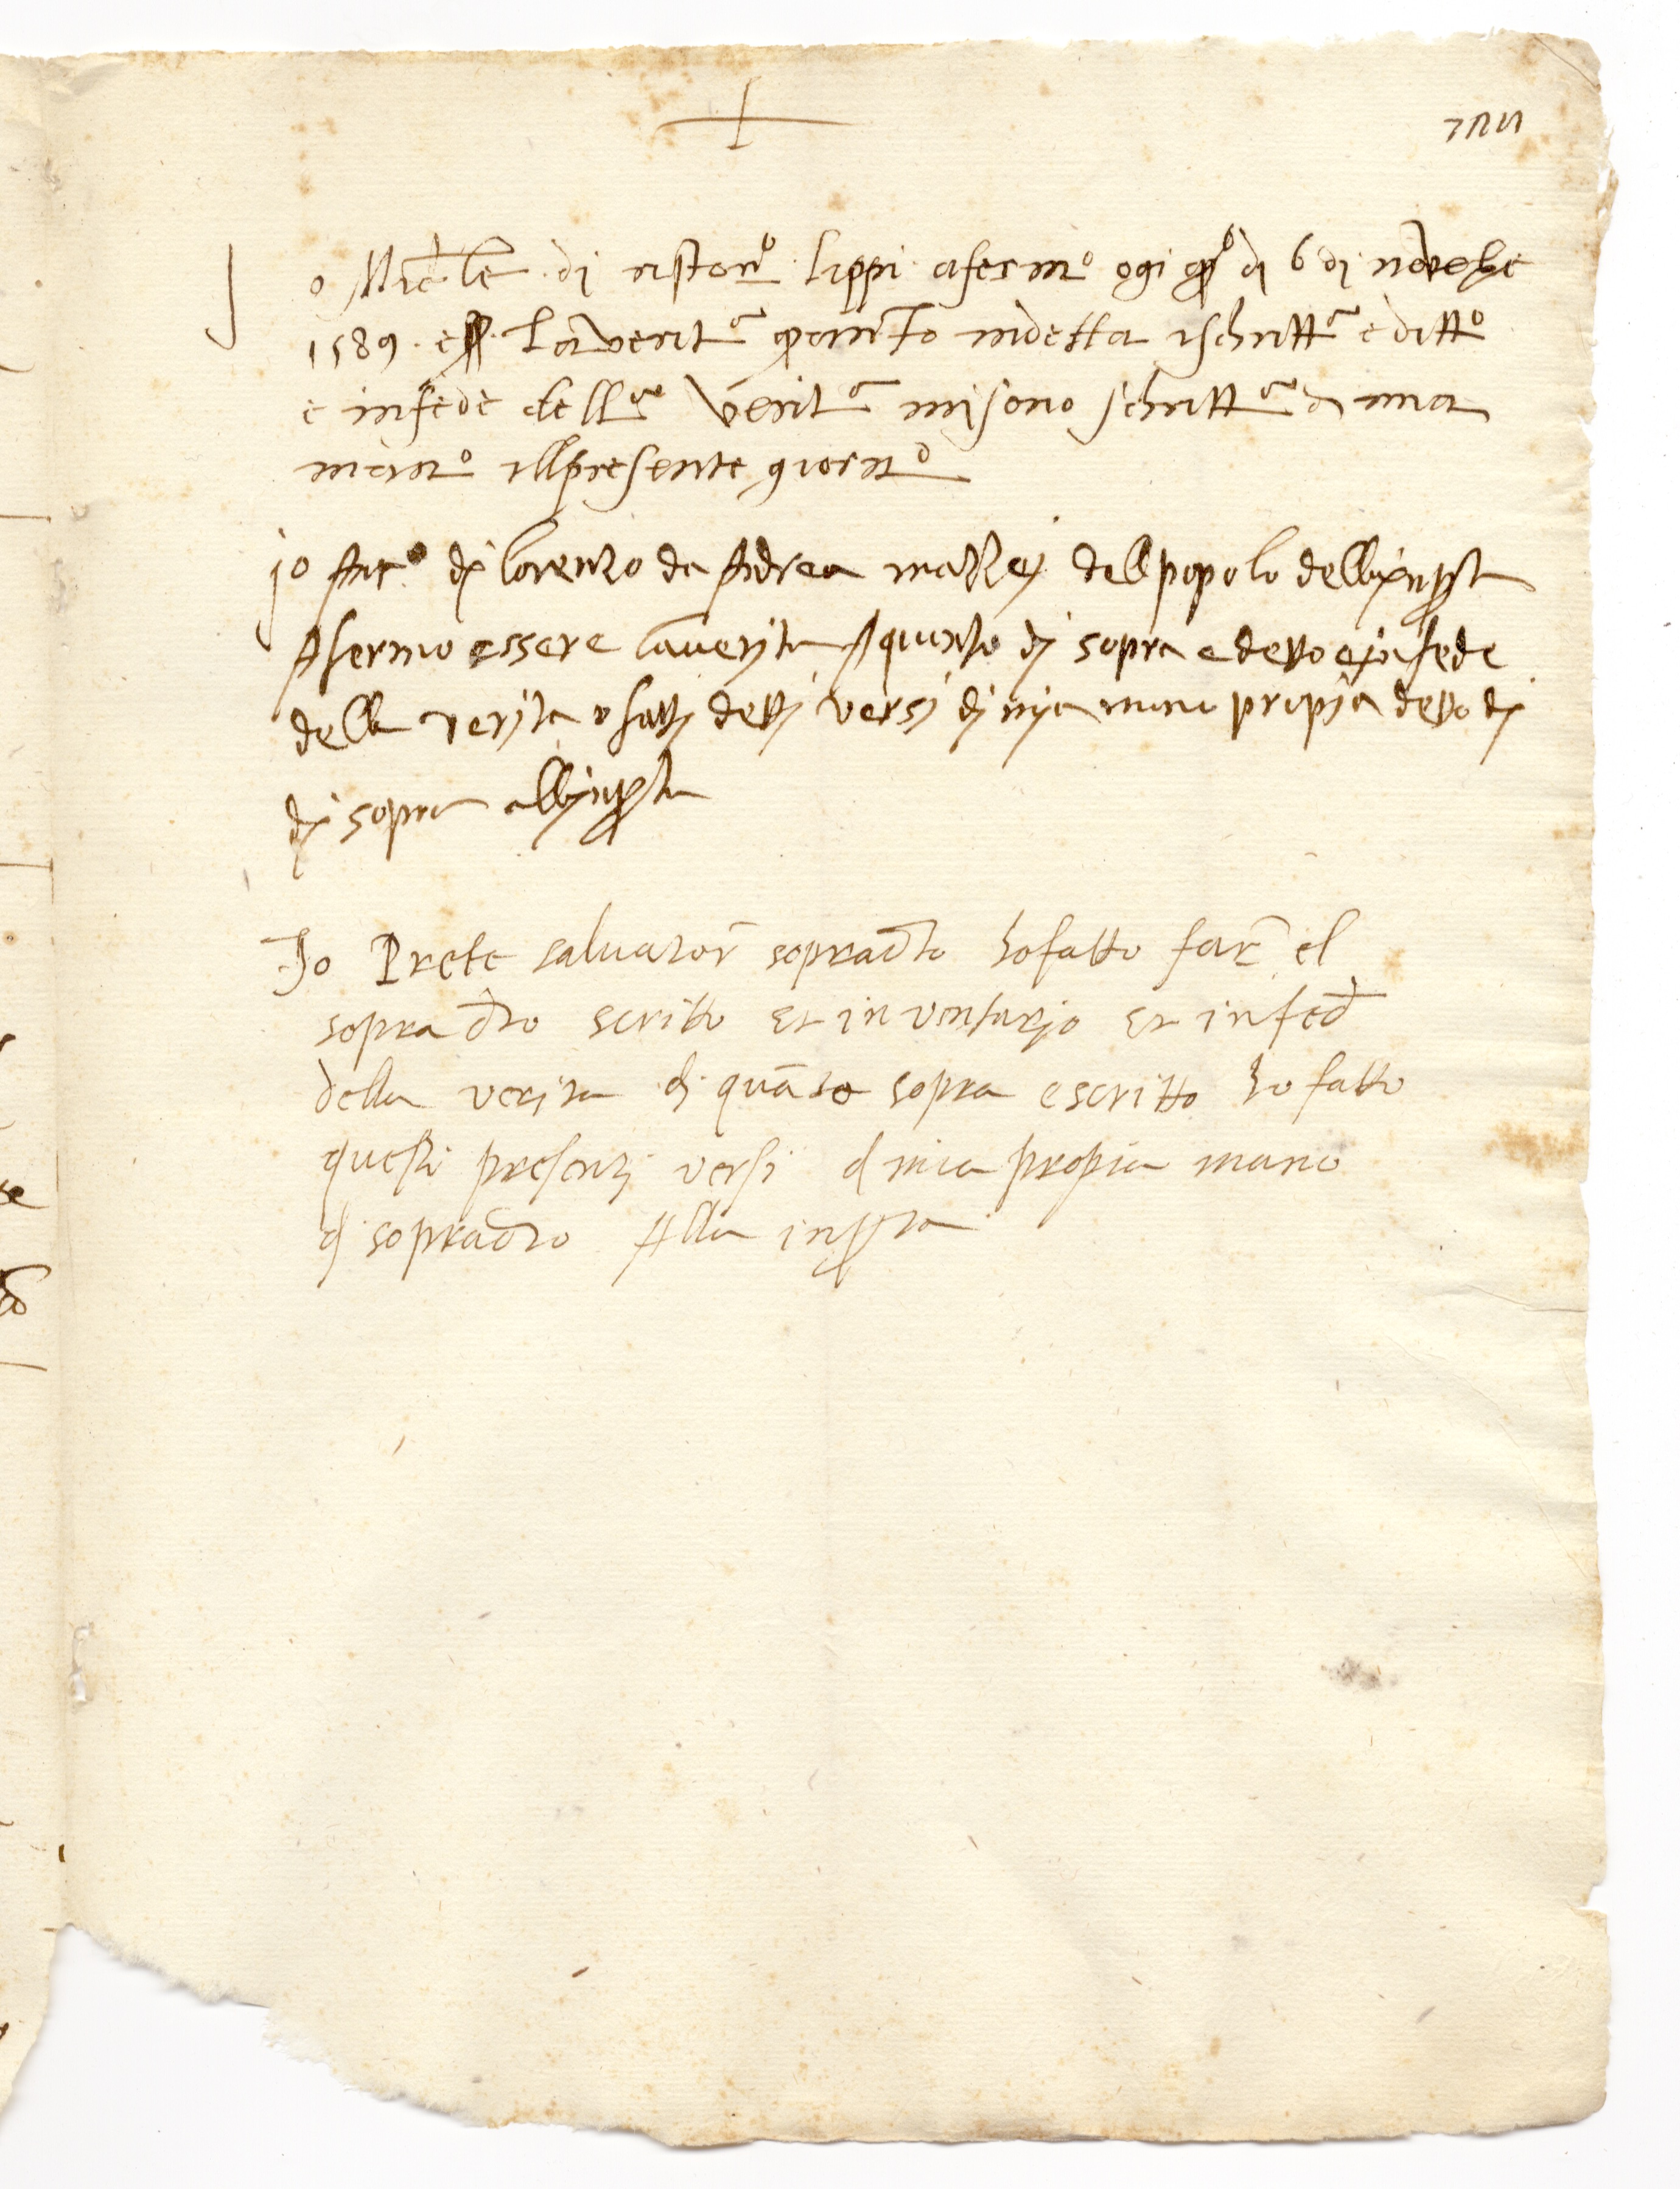 Jo Michele di ristoro lippi afermo ogi dì 6 di novebre
1589 laverita quanto indetta ischritta e ditto
e infede della verita misono schritto di mia
mano illpresente giorno
jo Anto di lorenzo da Andrea mazzej dellpopolo dellinprta
Afermo essere laverita quanto dj sopra e detto e in fede
della verita o fatti detti versi dj mja mano propja detto dj
dj sopra allinprta
Jo Prete salvator sopradto ho fatto far el
sopra dto scritto et inventario et in fed
della verita di quāto sopra e scritto ho fatto
questi presenti versi d mia propria mano
dì sopradto Alla inprta